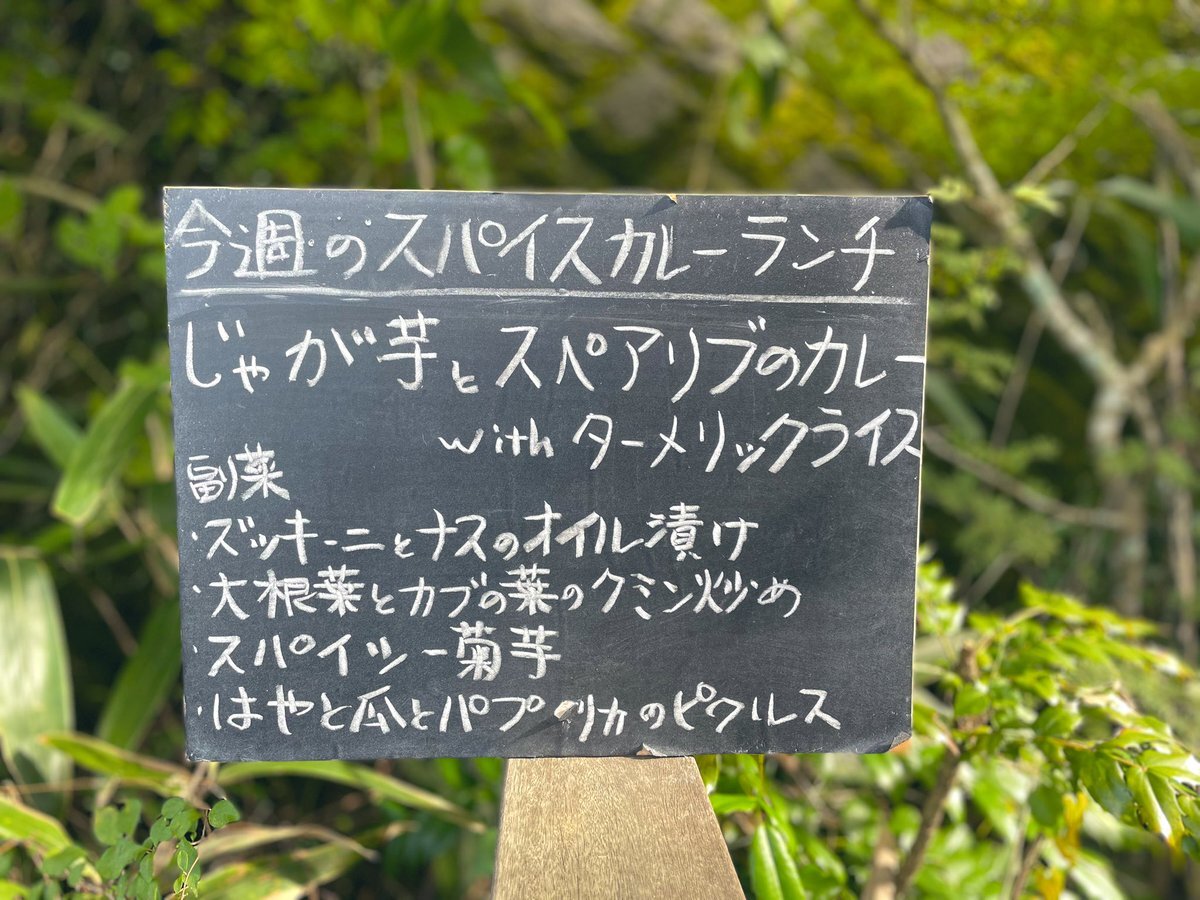 今週のスパイスカレーランチ
じゃが芋とスペアリブのカレー
with ターメリックライス
副菜
・ズッキーニとナスのオイル漬け
・大根葉とカブの葉のクミン炒め
・スパイシー菊芋
・はやと瓜とパプリカのピクルス